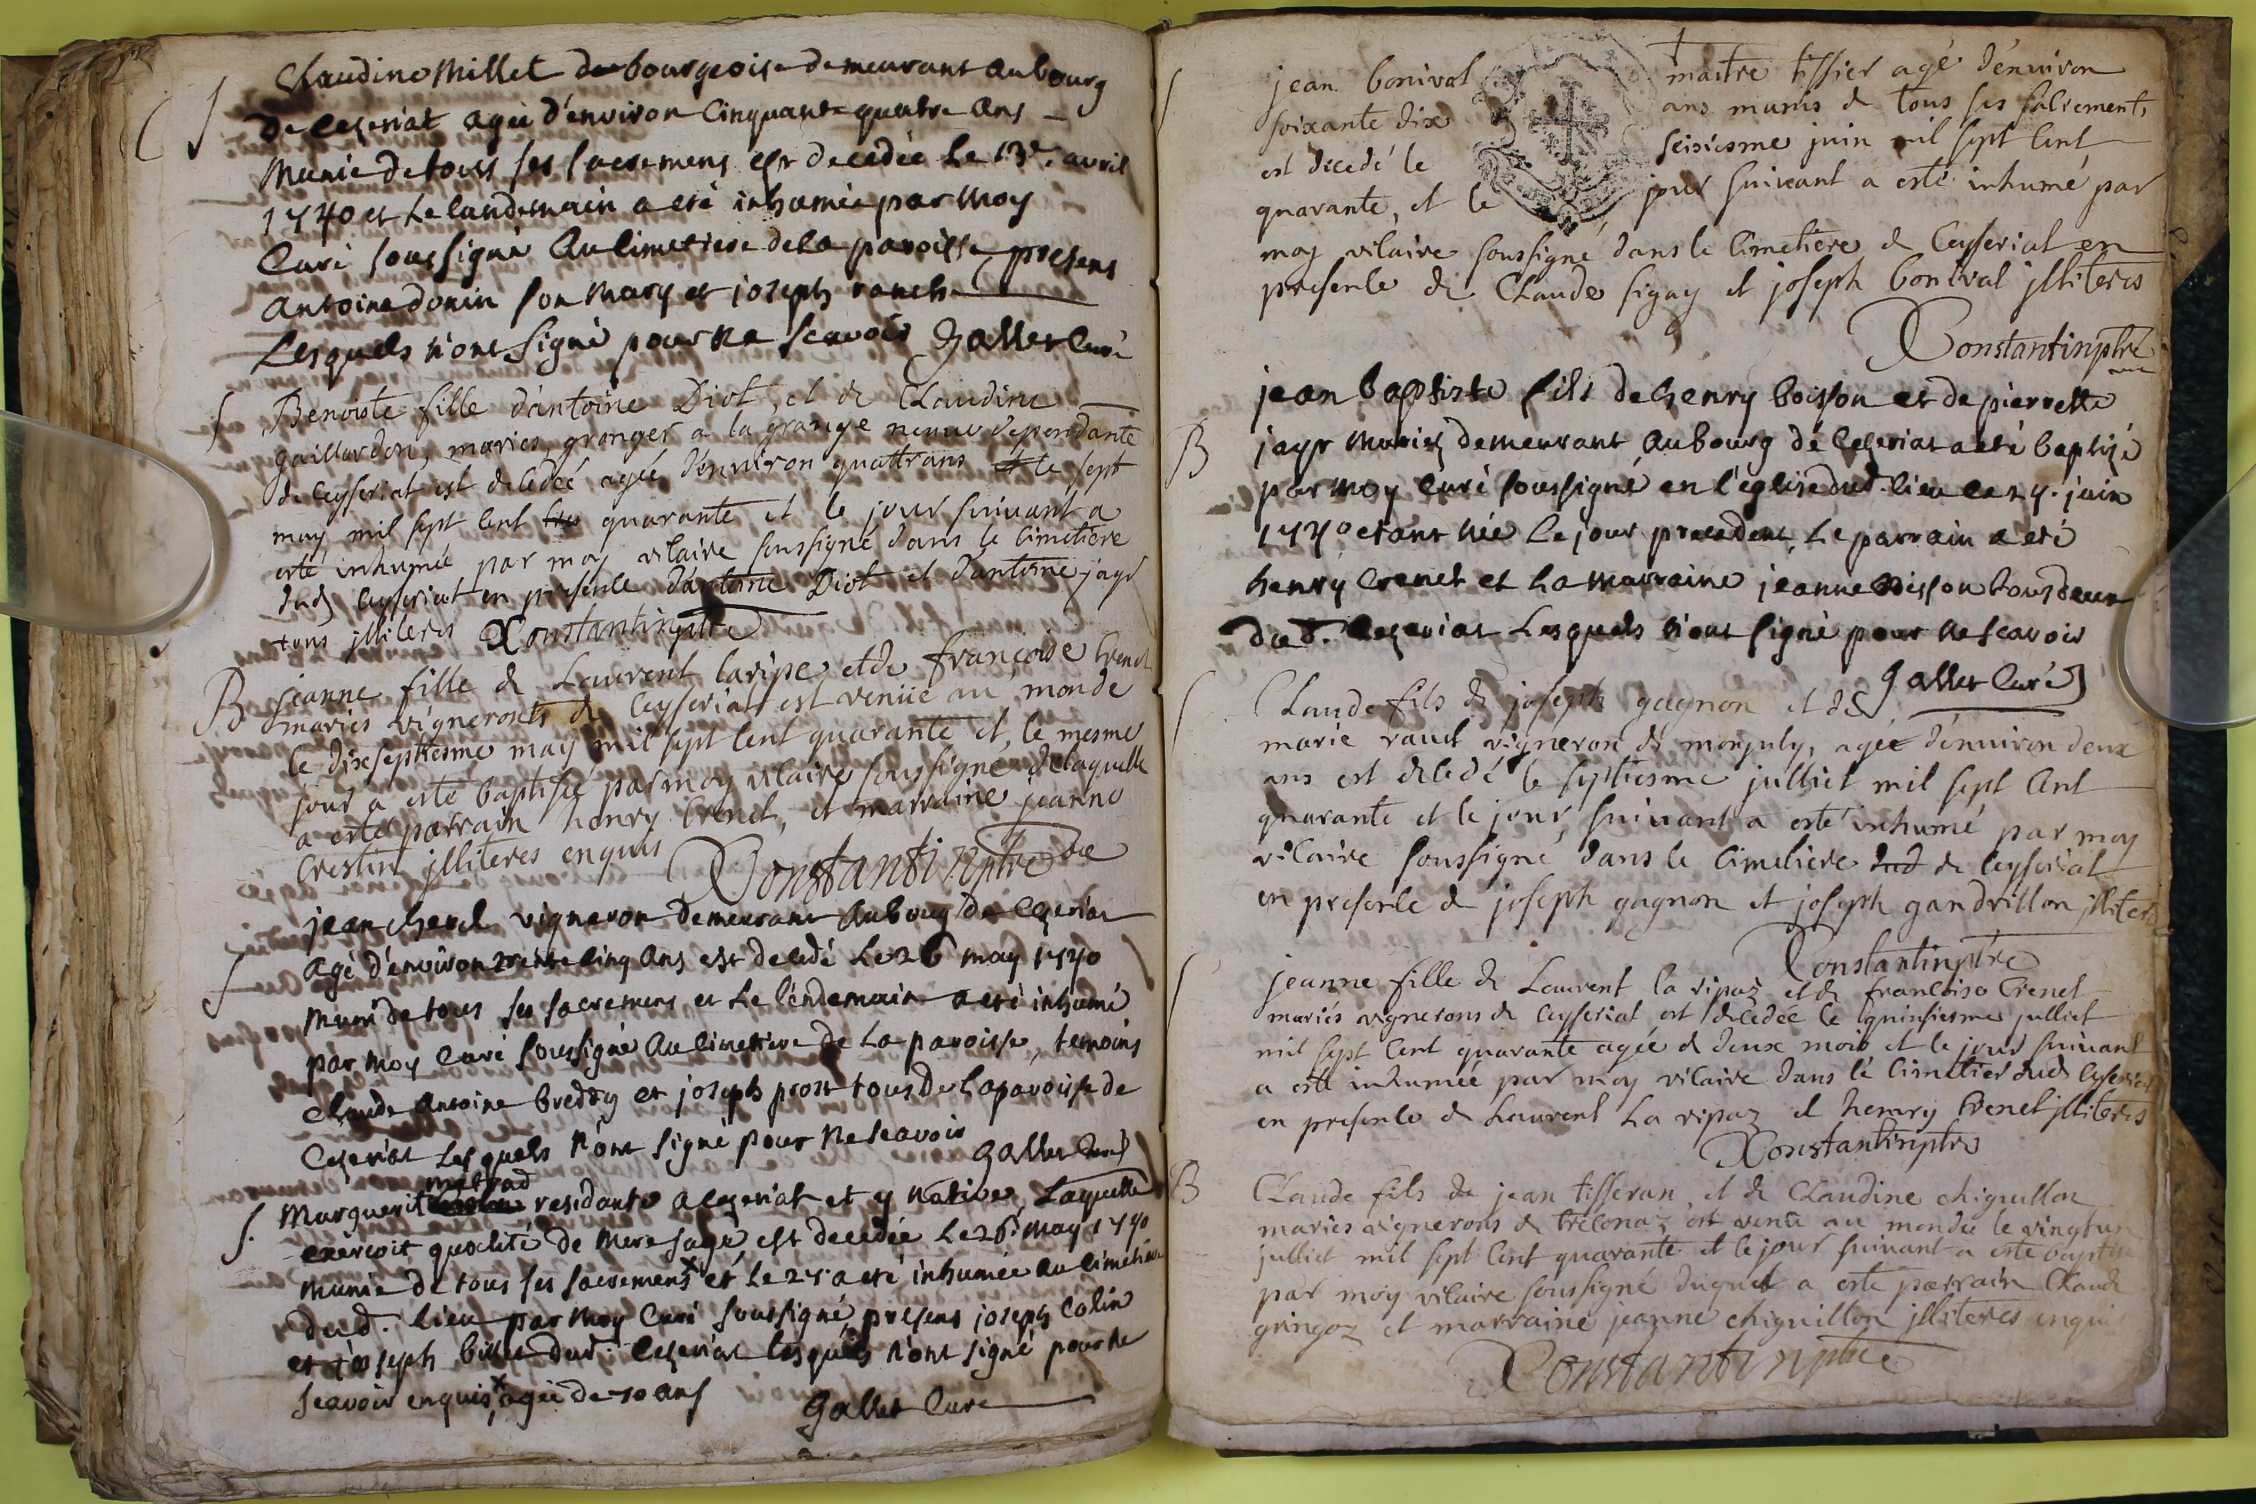 Claudine Millet bourgeoise demeurant au bourg
De Cezeriat agée d'environ Cinquante quatre ans
Munie de tous ses sacremens est decedée Le 13e. avril
1740 et Le landemain a eté inhumée par Moy
Curé soussigné Au Cimetiere de La paroisse, presens
Antoine donin son Mary et joseph
Lesquels n'ont signé pour ne scavoir Gallet Curé
S Benoiste fille d'antoine Diot, et de Claudine
gaillardon, mariés, granger a la grange neuve dependante
de Ceyseriat est decedée agée d'environ quattrans le sept
may mil sept cent quarante et le jour suivant a
esté inhumée par moy vicaire soussigné dans le Cimetiere
dud. Ceyseriat en presence d'antoine Diot et d'antoine jayr
tous jlliteres Constantin ptre
B jeanne fille de Laurent laripe et de françoise trenet
mariés vignerons de Ceyseriat est venüe au monde
le dixseptiesme may mil sept cent quarante et le mesme
jour a esté baptisée par moy vicaire soussigné de laquelle
a esté parrain henry trenet, et marraine jeanne
Crestin jlliteres enquis Constantin ptre vic
jean vigneron demeurant Au bourg de Cezeriat
S Agé d'environ trente cinq Ans est decedé Le 26 may 1740
Muni de tous ses sacremens et Le lendemain a eté inhumé
par Moy Curé soussigné Au Cimetiere de La paroisse, temoins
Claude Antoine breddy et joseph prost tous de La paroisse de
Cezeriat Lesquels n'ont signé pour ne scavoir Gallet Curé
S. Marguerite residante a Cezeriat et y native, Laquelle
exercoit qualité de Mere sage est decedée Le 26. May 1740
Munie de tous ses sacremens et Le 27 a eté inhumée au Cimetiere
dud. lieu par Moy Curé soussigné, presens joseph Colin
et joseph billet dud. Cezeriat lesquels n'ont signé pour ne
scavoir enquis x agée de 70 ans Gallet Curé
S jean bonival maitre tissier agé d'environ
soixante dix ans munis de tous ses sacrements
est decedé le seisiesme juin mil sept cent
quarante, et le jour suivant a esté inhumé par
moy vicaire soussigné dans le Cimetiere de Ceyseriat en
presence de Claude sigay et joseph bonival jlliteres
Constantin ptre
vic
jean baptiste fils de henry boisson et de pierrette
B jayr Mariez demeurant Au bourg de Cezeriat a eté baptizé
par Moy Curé soussigné en l'église dud. lieu Le 27. juin
1740 etant née Le jour precedent, Le parrain a eté
henry trenet et La Marraine jeanne boisson tous deux
dud. Cezeriat Lesquels n'ont signé pour ne scavoir
Gallet Curé
S Claude fils de joseph gagnon et de
marie ravet vigneron de monjuly, agée d'environ deux
ans est decedé le septiesme julliet mil sept cent
quarante et le jour suivant a esté inhumé par moy
vicaire soussigné dans le Cimetiere dud de Ceyseriat
en presence de joseph gagnon et joseph gandrillon jlliteres
Constantin ptre
S jeanne fille de Laurent la ripaz et de francoise trenet
mariés vignerons de Ceyseriat est decedée le quinsiesme julliet
mil sept cent quarante agée de deux mois et le jour suivant
a esté inhumée par moy vicaire dans le Cimetier dud Ceyseriat
en presence de Laurent La ripaz et henry trenet jlliteres
Constantin ptre
B Claude fils de jean tisseran et de Claudine chiguillon
mariés vignerons de trèconaz est venu au monde le vingt un
julliet mil sept cent quarante et le jour suivant a esté baptisé
par moy vicaire soussigné duquel a esté parrain Claude
gringoz et marraine jeanne chiguillon jlliteres enquis
Constantin ptre